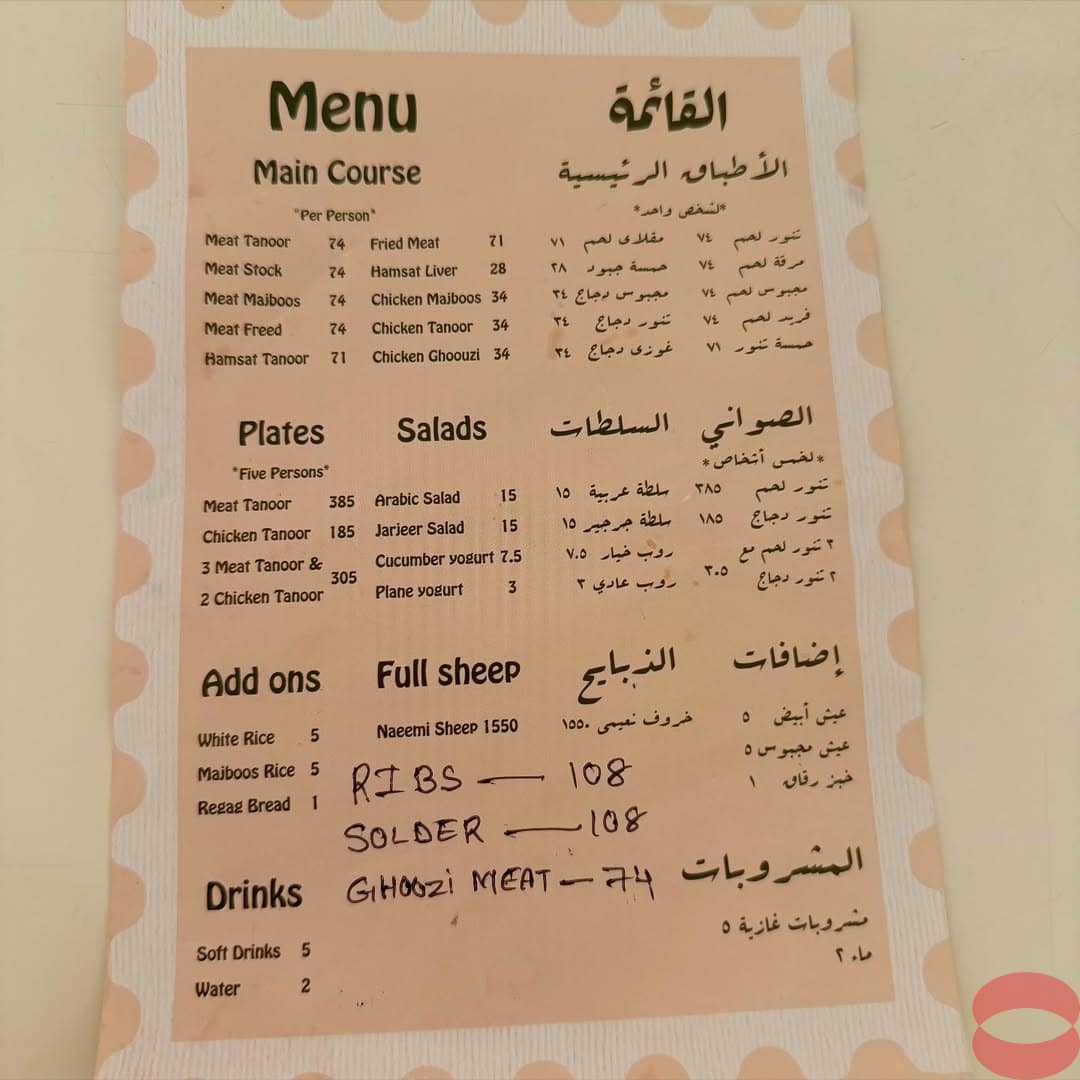 Menu
القائمة
Main Course
الأطباق الرئيسية
"Per Person"
*لشخص واحد*
Meat Tanoor 74 Fried Meat 71
تنور لحم ٧٤ مقلاى لحم ٧١
Meat Stock 74 Hamsat Liver 28
مرقة لحم ٧٤ حمسة جبود ٢٨
Meat Majboos 74 Chicken Majboos 34
مجبوس لحم ٧٤ مجبوس دجاج ٣٤
Meat Freed 74 Chicken Tanoor 34
فريد لحم ٧٤ تنور دجاج ٣٤
Hamsat Tanoor 71 Chicken Ghoouzi 34
حمسة تنور ٧١ غوزى دجاج ٣٤
Plates Salads
الصواني السلطات
"Five Persons"
*لخمس أشخاص*
Meat Tanoor 385 Arabic Salad 15
تنور لحم ٣٨٥ سلطة عربية ١٥
Chicken Tanoor 185 Jarjeer Salad 15
تنور دجاج ١٨٥ سلطة جرجير ١٥
3 Meat Tanoor & Cucumber yogurt 7.5
٣ تنور لحم مع روب خيار ٧.٥
305
٣٠٥
2 Chicken Tanoor Plane yogurt 3
٢ تنور دجاج روب عادي ٣
Add ons Full sheep
إضافات الذبايح
White Rice 5 Naeemi Sheep 1550
عيش أبيض ٥ خروف نعيمى ١٥٥٠
Majboos Rice 5
عيش مجبوس ٥
RIBS — 108
Regag Bread 1
خبز رقاق ١
SOLDER — 108
GHOOZI MEAT — 74
Drinks
المشروبات
Soft Drinks 5
مشروبات غازية ٥
Water 2
ماء ٢